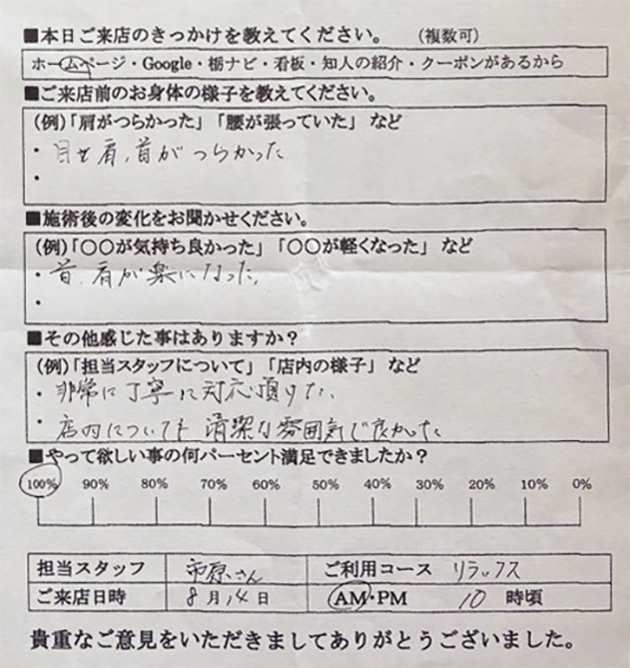 ■本日ご来店のきっかけを教えてください。 (複数可)
ホームページ・Google・栃ナビ・看板・知人の紹介・クーポンがあるから
■ご来店前のお身体の様子を教えてください。
(例)「肩がつらかった」「腰が張っていた」など
・目と肩、首がつらかった
・
■施術後の変化をお聞かせください。
(例)「〇〇が気持ち良かった」「〇〇が軽くなった」など
・首、肩が楽になった。
・
■その他感じた事はありますか？
(例)「担当スタッフについて」「店内の様子」など
・非常に丁寧に対応頂けた。
・店内についても 清潔な雰囲気で良かった
■やって欲しい事の何パーセント満足できましたか？
100% 90% 80% 70% 60% 50% 40% 30% 20% 10% 0%
担当スタッフ 市原さん ご利用コース リラックス
ご来店日時 8月14日 AM・PM 10 時頃
貴重なご意見をいただきましてありがとうございました。